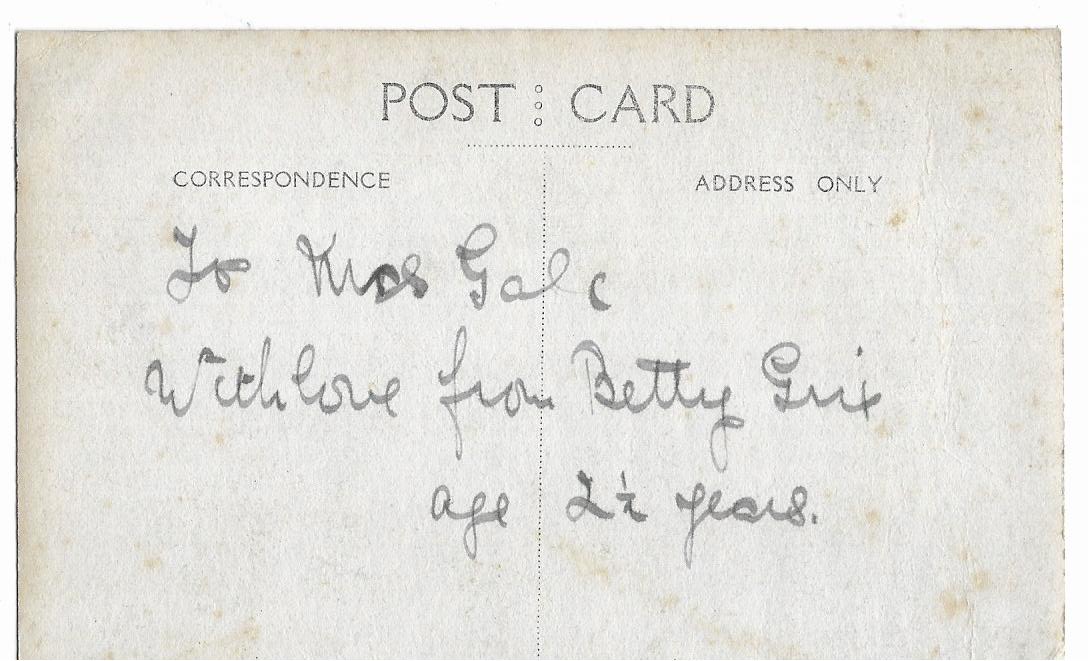 POST CARD
CORRESPONDENCE ADDRESS ONLY
To Mrs Gale
With love from Betty Grix
age 2½ years.